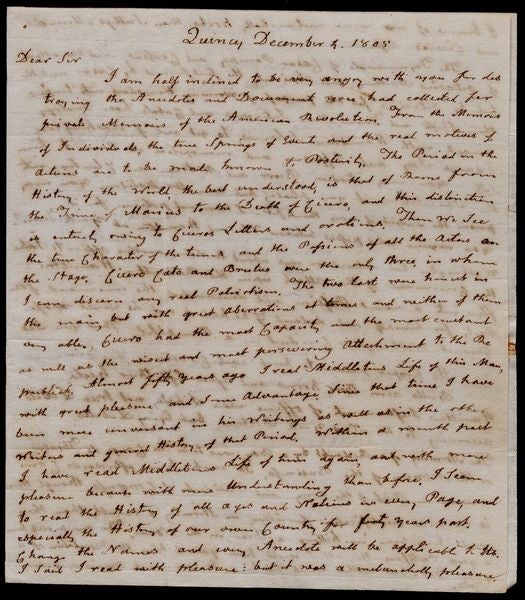 Quincy December 4. 1805
Dear Sir
I am half inclined to be very angry with you for des
troying the Anecdotes and Documents you had collected for
private Memoirs of the American Revolution. From the Memoirs
of Individuals, the true Springs of Events and the real motives of
Actions are to be made known to Posterity. The Period in the
History of the World, the best understood, is that of Rome from
the Time of Marius to the Death of Cicero, and this distinction
is entirely owing to Ciceros Letters and orations. There We See
the true Character of the times and the Passions of all the Actors on
the Stage. Cicero Cato and Brutus were the only three, in whom
I can discern any real Patriotism. The two last were honest in
the main, but with great aberrations at times and neither of them
very able. Cicero had the most Capacity and the most constant
as well as the wisest and most persevering Attachment to the Re
publick. Almost fifty years ago I read Middletons Life of this Man,
with great pleasure and Some Advantage. Since that time I have
been more conversant in his Writings as well as in the other
Writers and general History of that Period. Within a month past
I have read Middletons Life of him again, and with more
pleasure because with more Understanding than before. I Seem
to read the History of all ages and Nations in every Page, and
especially the History of our own Country for forty years past.
Change the Names and every Anecdote will be applicable to Us.
I Said I read with pleasure: but it was a melancholly pleasure.